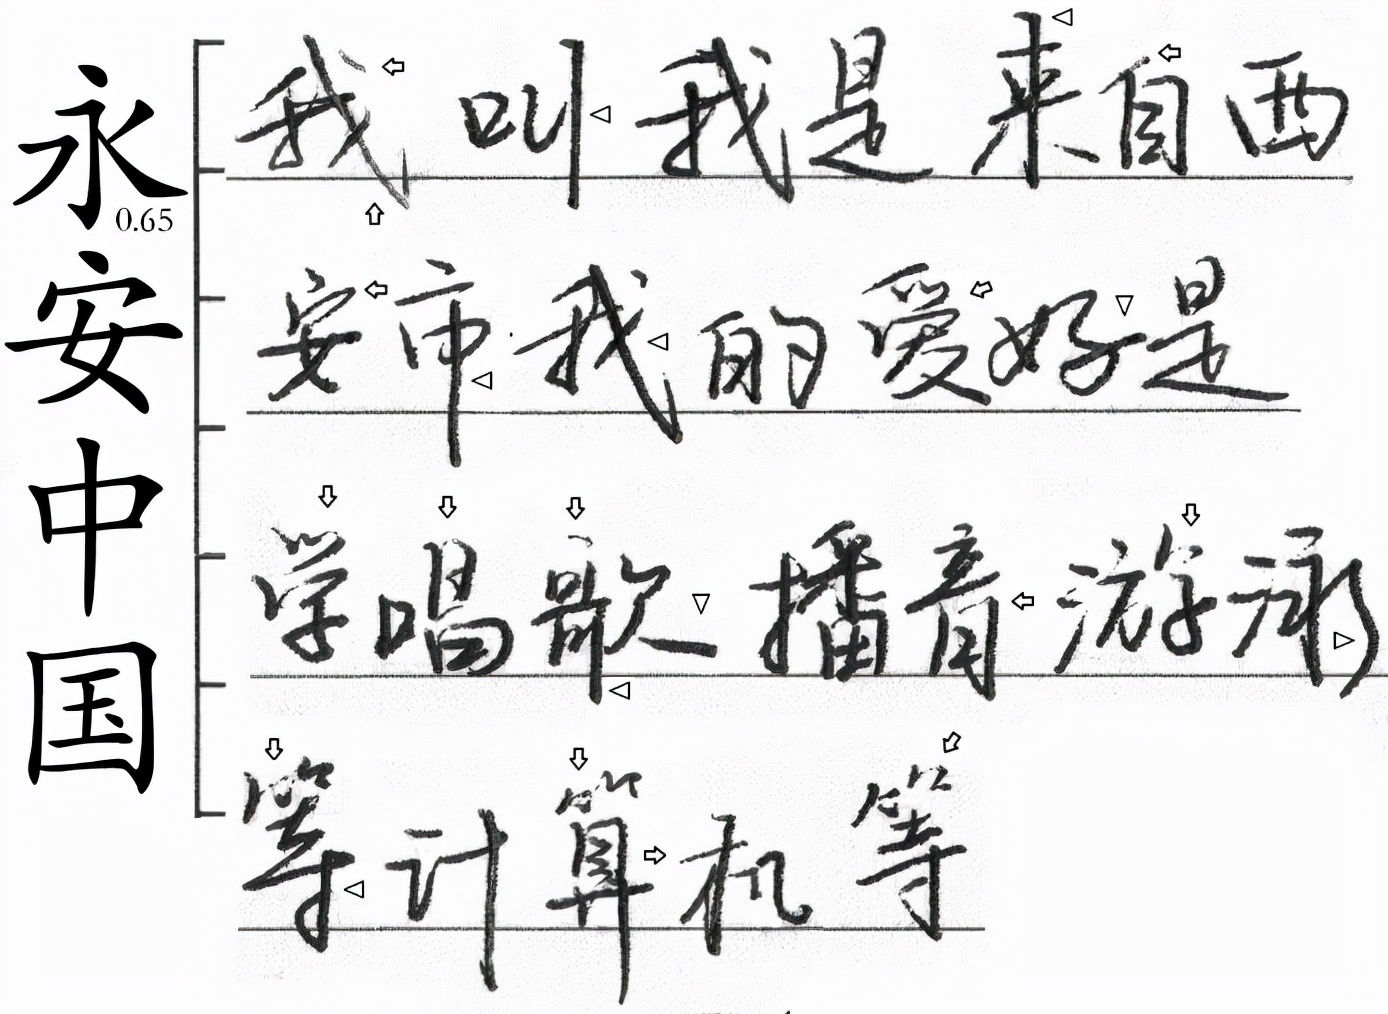 永安中国
0.65
我叫我是来自西
安市我的爱好是
学唱歌播音游泳
筝计算机等